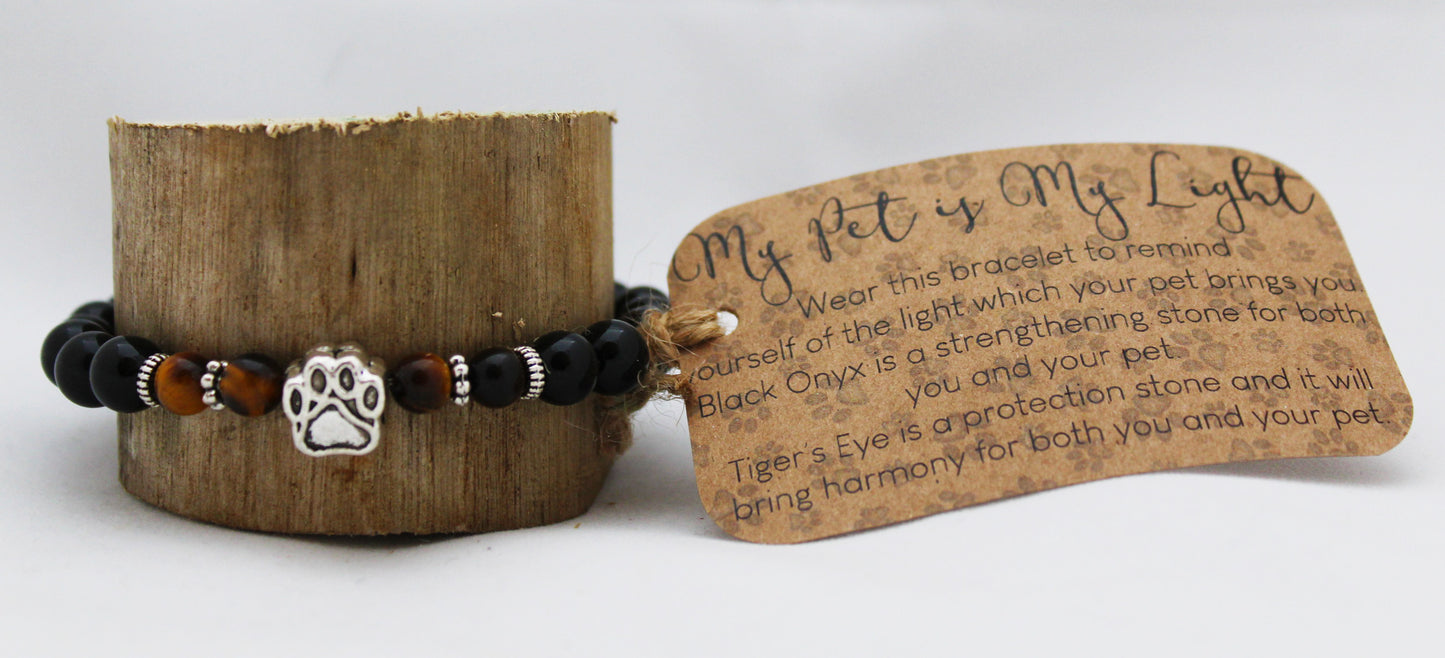 My Pet is My Light
Wear this bracelet to remind
yourself of the light which your pet brings you.
Black Onyx is a strengthening stone for both
you and your pet.
Tiger's Eye is a protection stone and it will
bring harmony for both you and your pet.